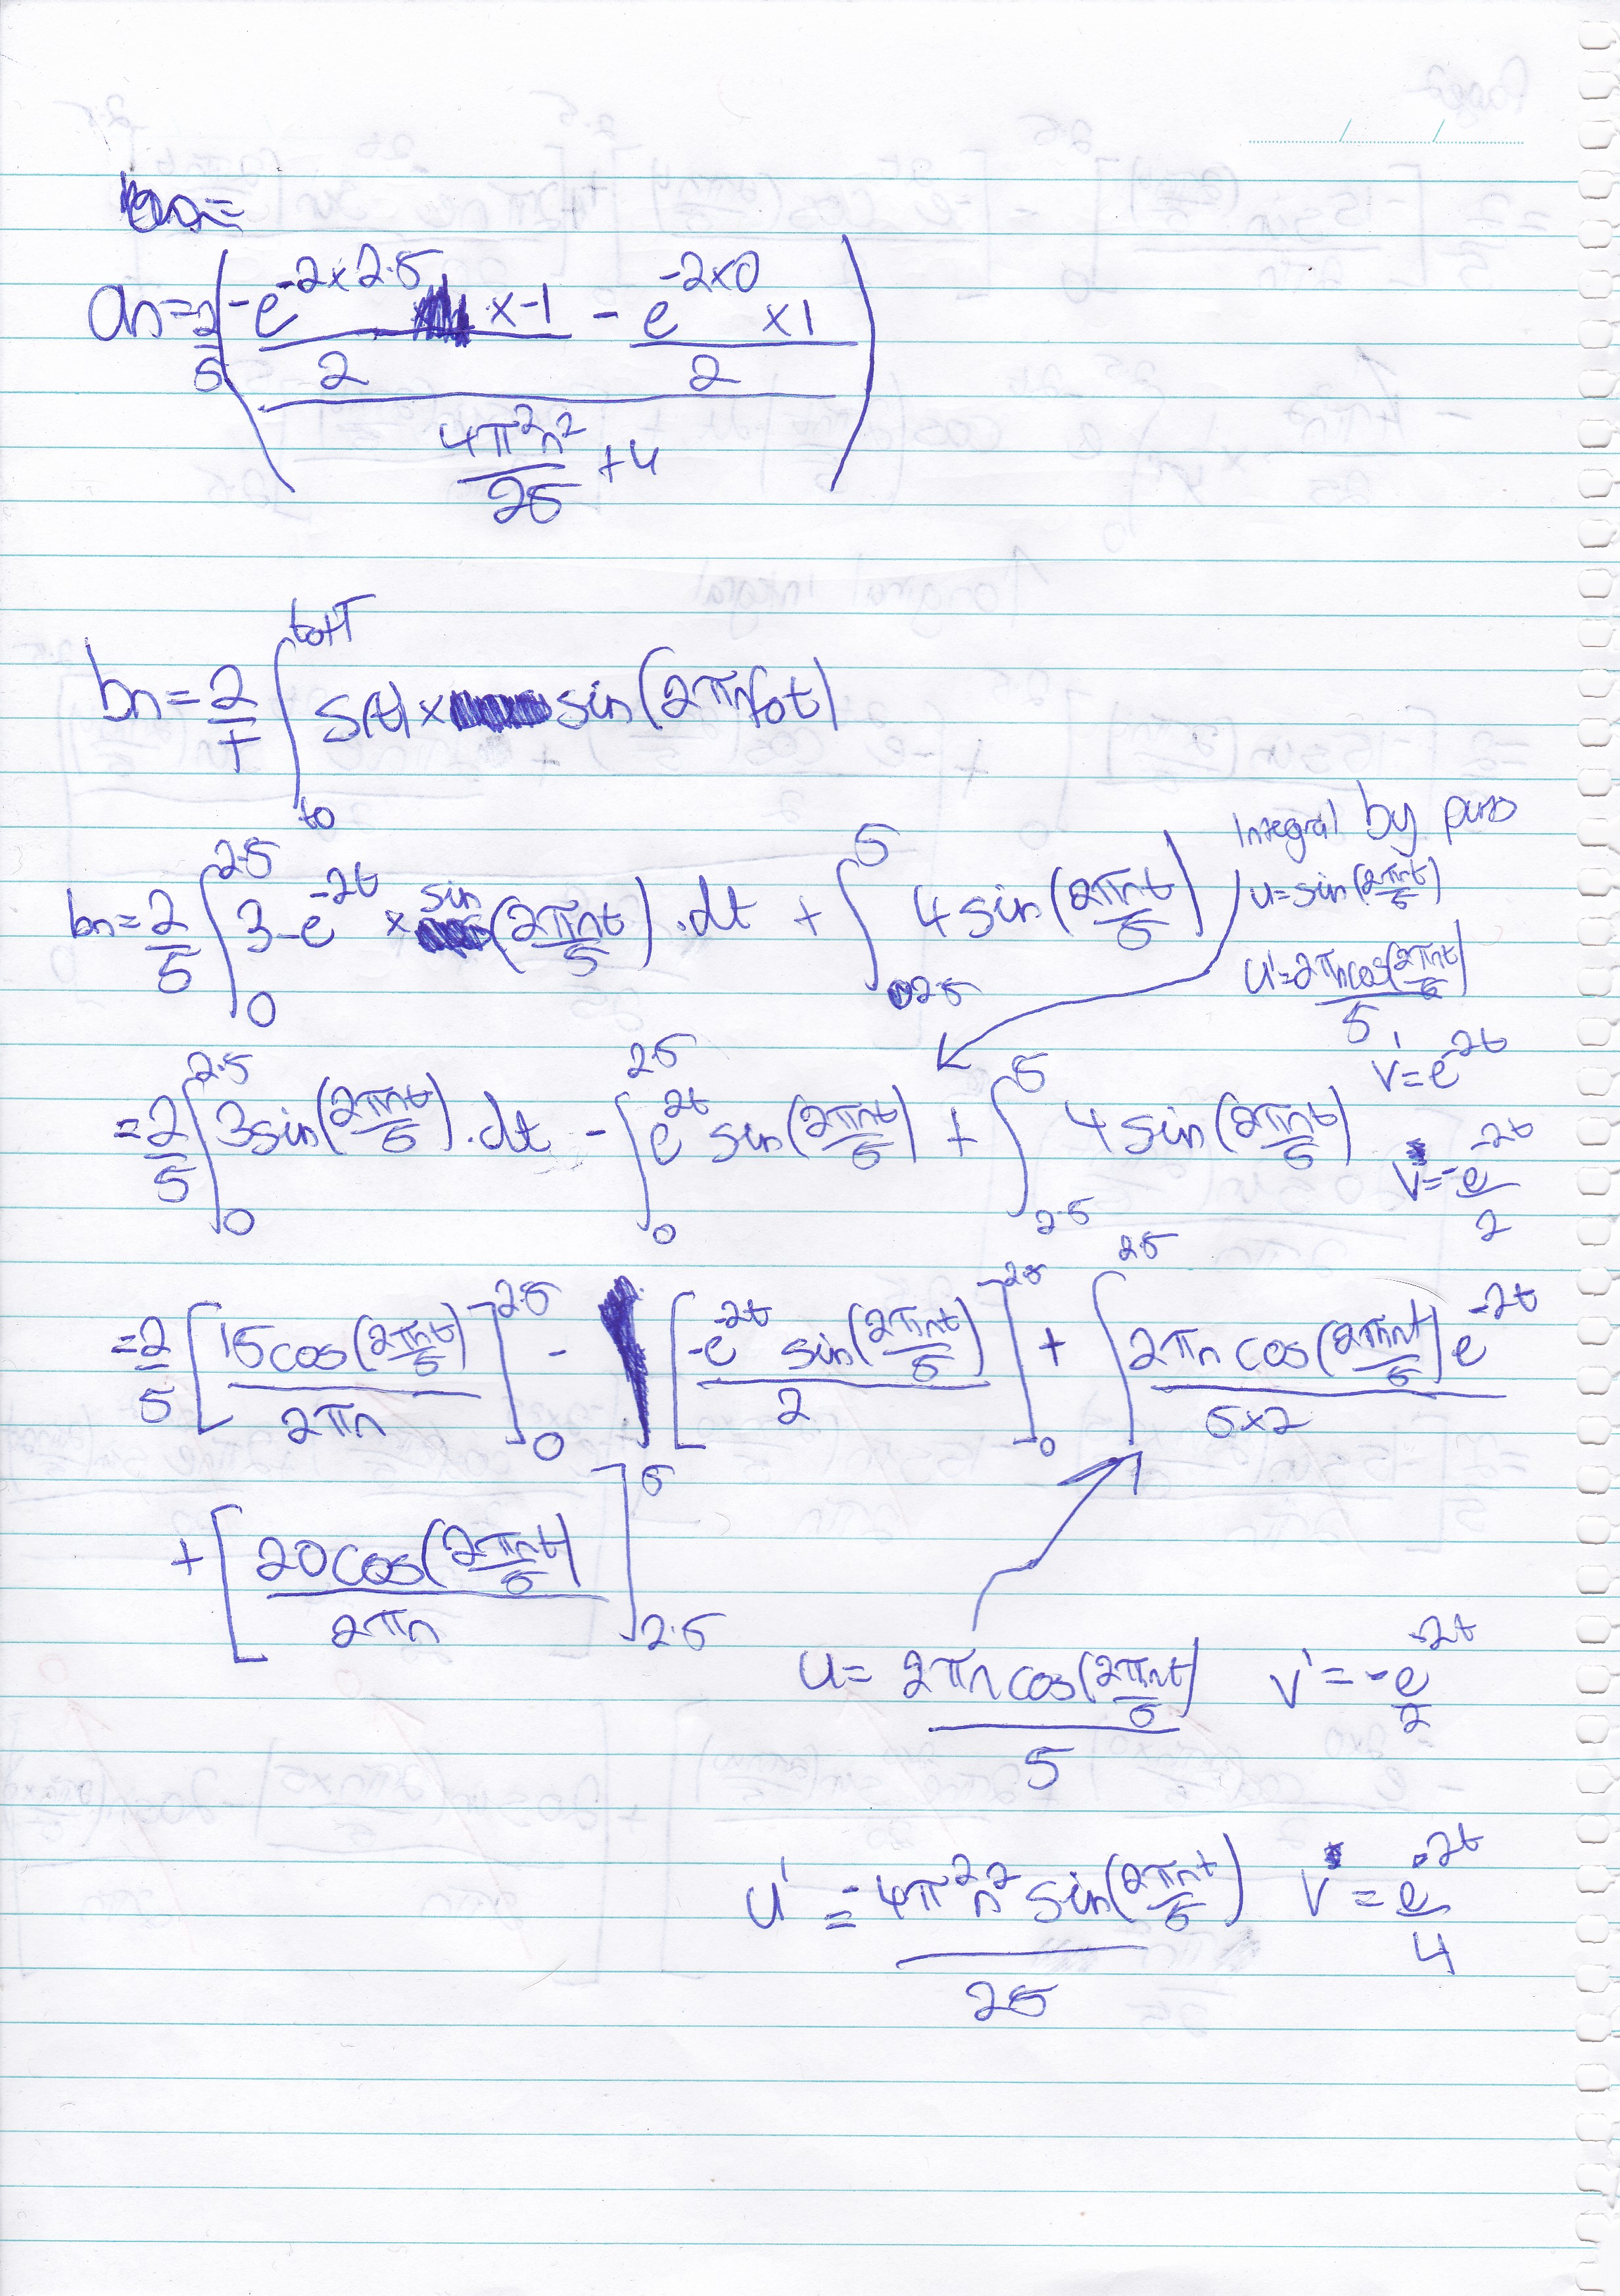 bn=
an = 2/5 ( (-e^(-2×2.5) × -1)/2 - (e^(-2×0) × 1)/2 ) / ( 4π²n²/25 + 4 )
bn = 2/T ∫_{to}^{to+T} s(t) × sin(2πnfot)
Integral by parts
u = sin(2πnt/5)
bn = 2/5 ∫_0^{2.5} 3 - e^(-2t) × sin(2πnt/5) . dt + ∫_{2.5}^5 4 sin(2πnt/5)
u' = 2πn cos(2πnt/5) / 5
v' = e^(-2t)
= 2/5 ∫_0^{2.5} 3 sin(2πnt/5) . dt - ∫_0^{2.5} e^(-2t) sin(2πnt/5) + ∫_{2.5}^5 4 sin(2πnt/5)
v = -e^(-2t)/2
= 2/5 [ 15 cos(2πnt/5) / 2πn ]_0^{2.5} - [ -e^(-2t) sin(2πnt/5) / 2 ]_0^{2.5} + ∫_0^{2.5} 2πn cos(2πnt/5) e^(-2t) / 5×2
+ [ 20 cos(2πnt/5) / 2πn ]_{2.5}^5
u = 2πn cos(2πnt/5) / 5   v' = -e^(-2t)/2
u' = -4π²n² sin(2πnt/5) / 25   v = e^(-2t)/4